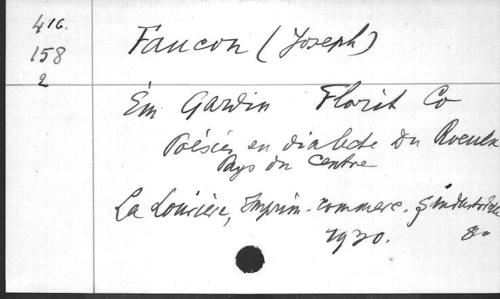 416.
158
2
Faucon (Joseph)
Em Gardin Florit Co
Poésies en dialecte du Roeulx
Pays du Centre
La Louvière, Imprim. commerc. & industrielle
1930. 8°